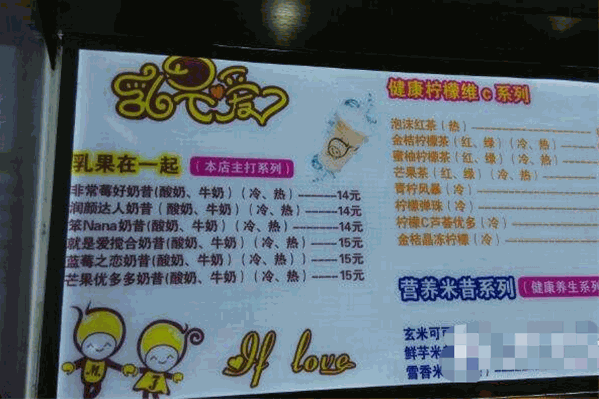 乳果在一起
(本店主打系列)
非常莓好奶昔(酸奶、牛奶)(冷、热)———14元
润颜达人奶昔(酸奶、牛奶)(冷、热)———14元
笨Nana奶昔(酸奶、牛奶)(冷、热)———14元
就是爱搅合奶昔(酸奶、牛奶)(冷、热)——15元
蓝莓之恋奶昔(酸奶、牛奶)(冷、热)——15元
芒果优多多奶昔(酸奶、牛奶)(冷、热)——15元
M
J
If love
健康柠檬维c系列
泡沫红茶(热)
金桔柠檬茶(红、绿)(冷、热)
蜜柚柠檬茶(红、绿)(冷、热)
芒果茶(红、绿)(冷、热)
青柠风暴(冷)
柠檬弹珠(冷)
柠檬C芦荟优多(冷)
金桔晶冻柠檬(冷)
营养米昔系列
(健康养生系列
玄米可可
鲜芋米
雪香米